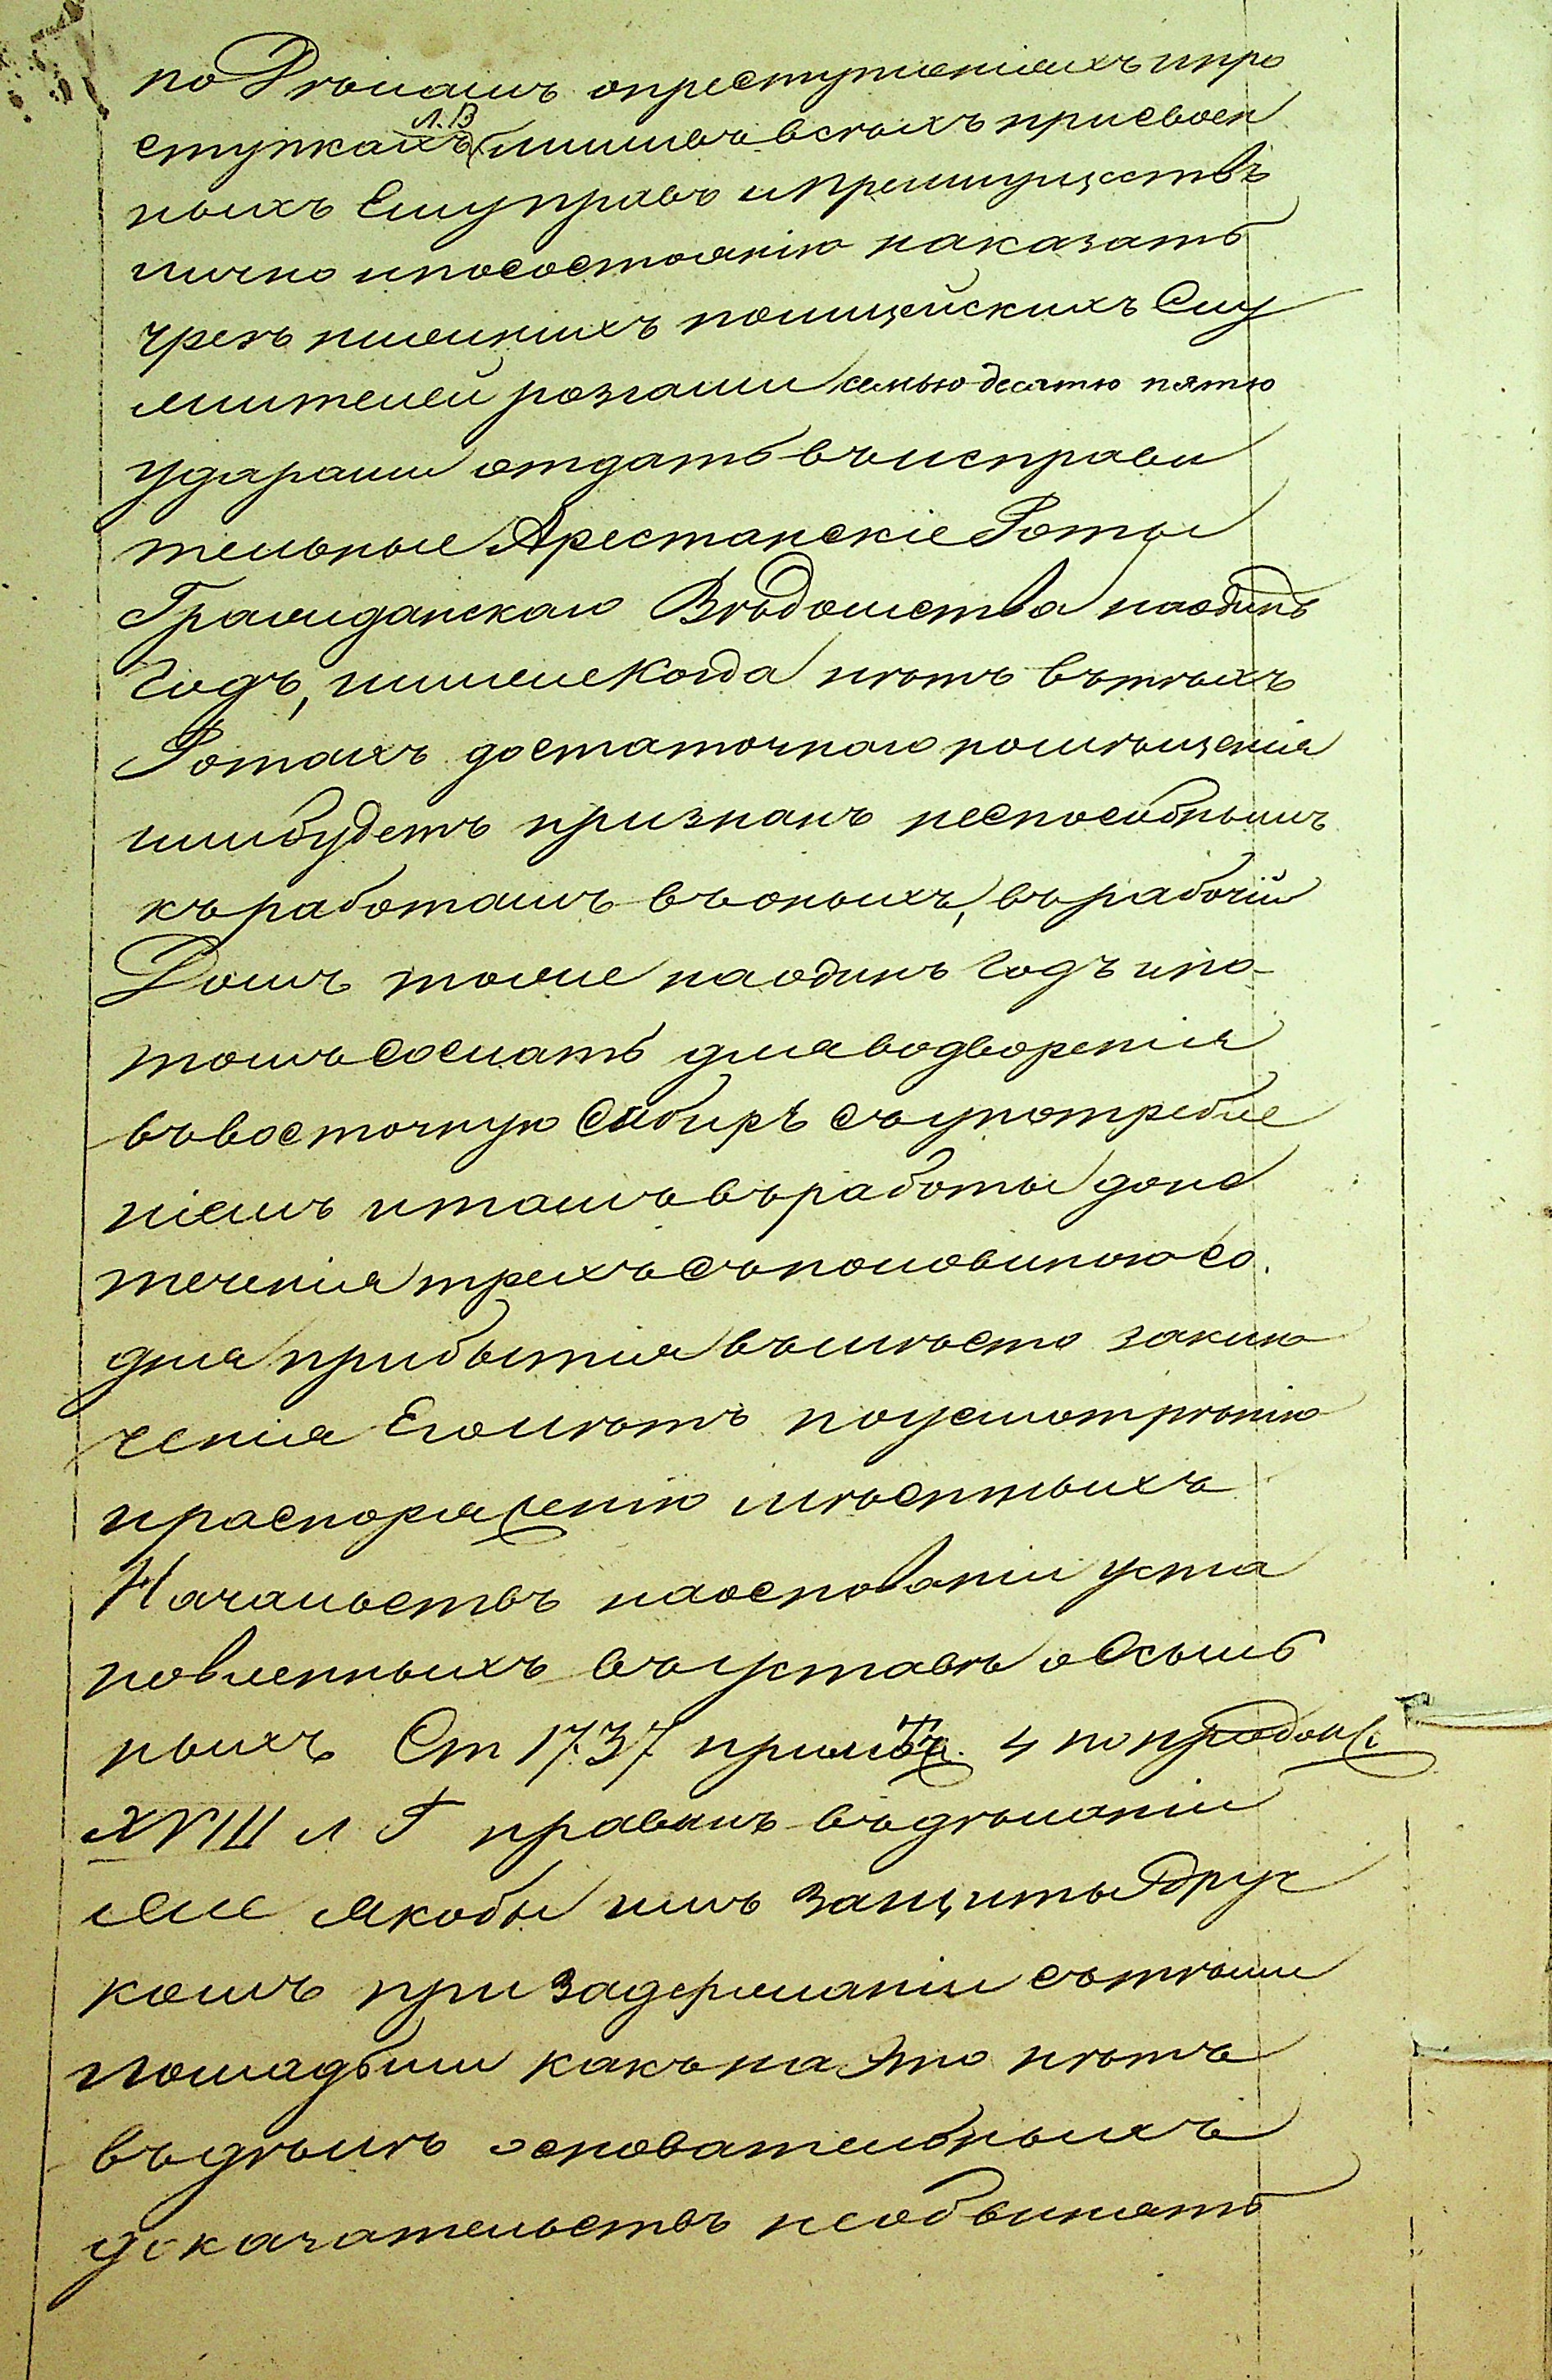 по Дѣламъ опреступленіяхъ ипро
ступкахъ Л.В лишивъ всѣхъ присвоен
ныхъ Ему правъ и преимуществъ
лично ипосостоянію наказать
чрезъ полицейскихъ Слу
жителей розгами семью десятю пятю
ударами отдать въисправи
тельные Арестанскіе Роты
Гражданскаго Вѣдомства наодинъ
Годъ, илиже Когда нѣтъ вътѣхъ
Ротахъ достаточнаго помѣщенія
илибудетъ признанъ неспособнымъ
къработамъ въоныхъ, върабочій
Домъ тоже наодинъ Годъ ипо-
томъ Сослать дляводворенія
въвосточную Сибиръ съупотребле
ніемъ итамъ въработы доис
теченія трехъ съполовиною со.
дня прибытія вмѣсто заклю
ченія Его лѣтъ поусмотрѣнію
ираспоряженію мѣстныхъ
Началъствъ наоснованіи уста
новленныхъ въуставѣ о Ссыль
ныхъ Ст 1737 примѣч. 4 по продолж
XVIII л Г правилъ въдѣланіи
же якобы имъ защиты Друг
комъ при задержаніи сътѣми
лошадьми какъ на это нѣтъ
въдѣлѣ основательныхъ
доказательствъ необвинять